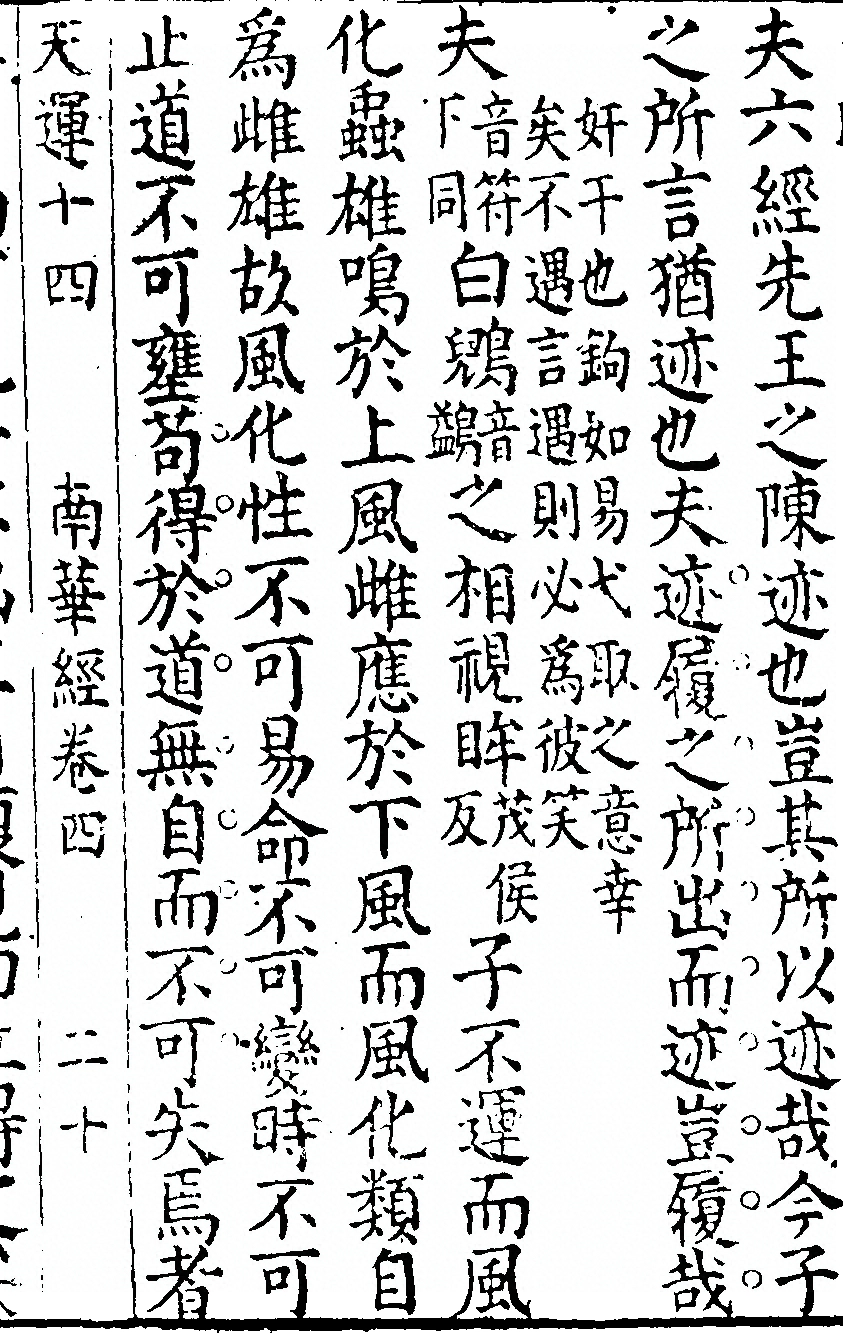 夫六經先王之陳迹也豈其所以迹哉今子
之所言猶迹也夫迹履之所出而迹豈履哉
奸干也鉤如易弋取之意幸
矣不遇言遇則必爲彼笑
夫音符下同白鶂音鷁之相視眸茂侯反子不運而風
化蟲雄鳴於上風雌應於下風而風化類自
爲雌雄故風化性不可易命不可變時不可
止道不可壅苟得於道無自而不可失焉者
天運十四 南華經卷四 二十